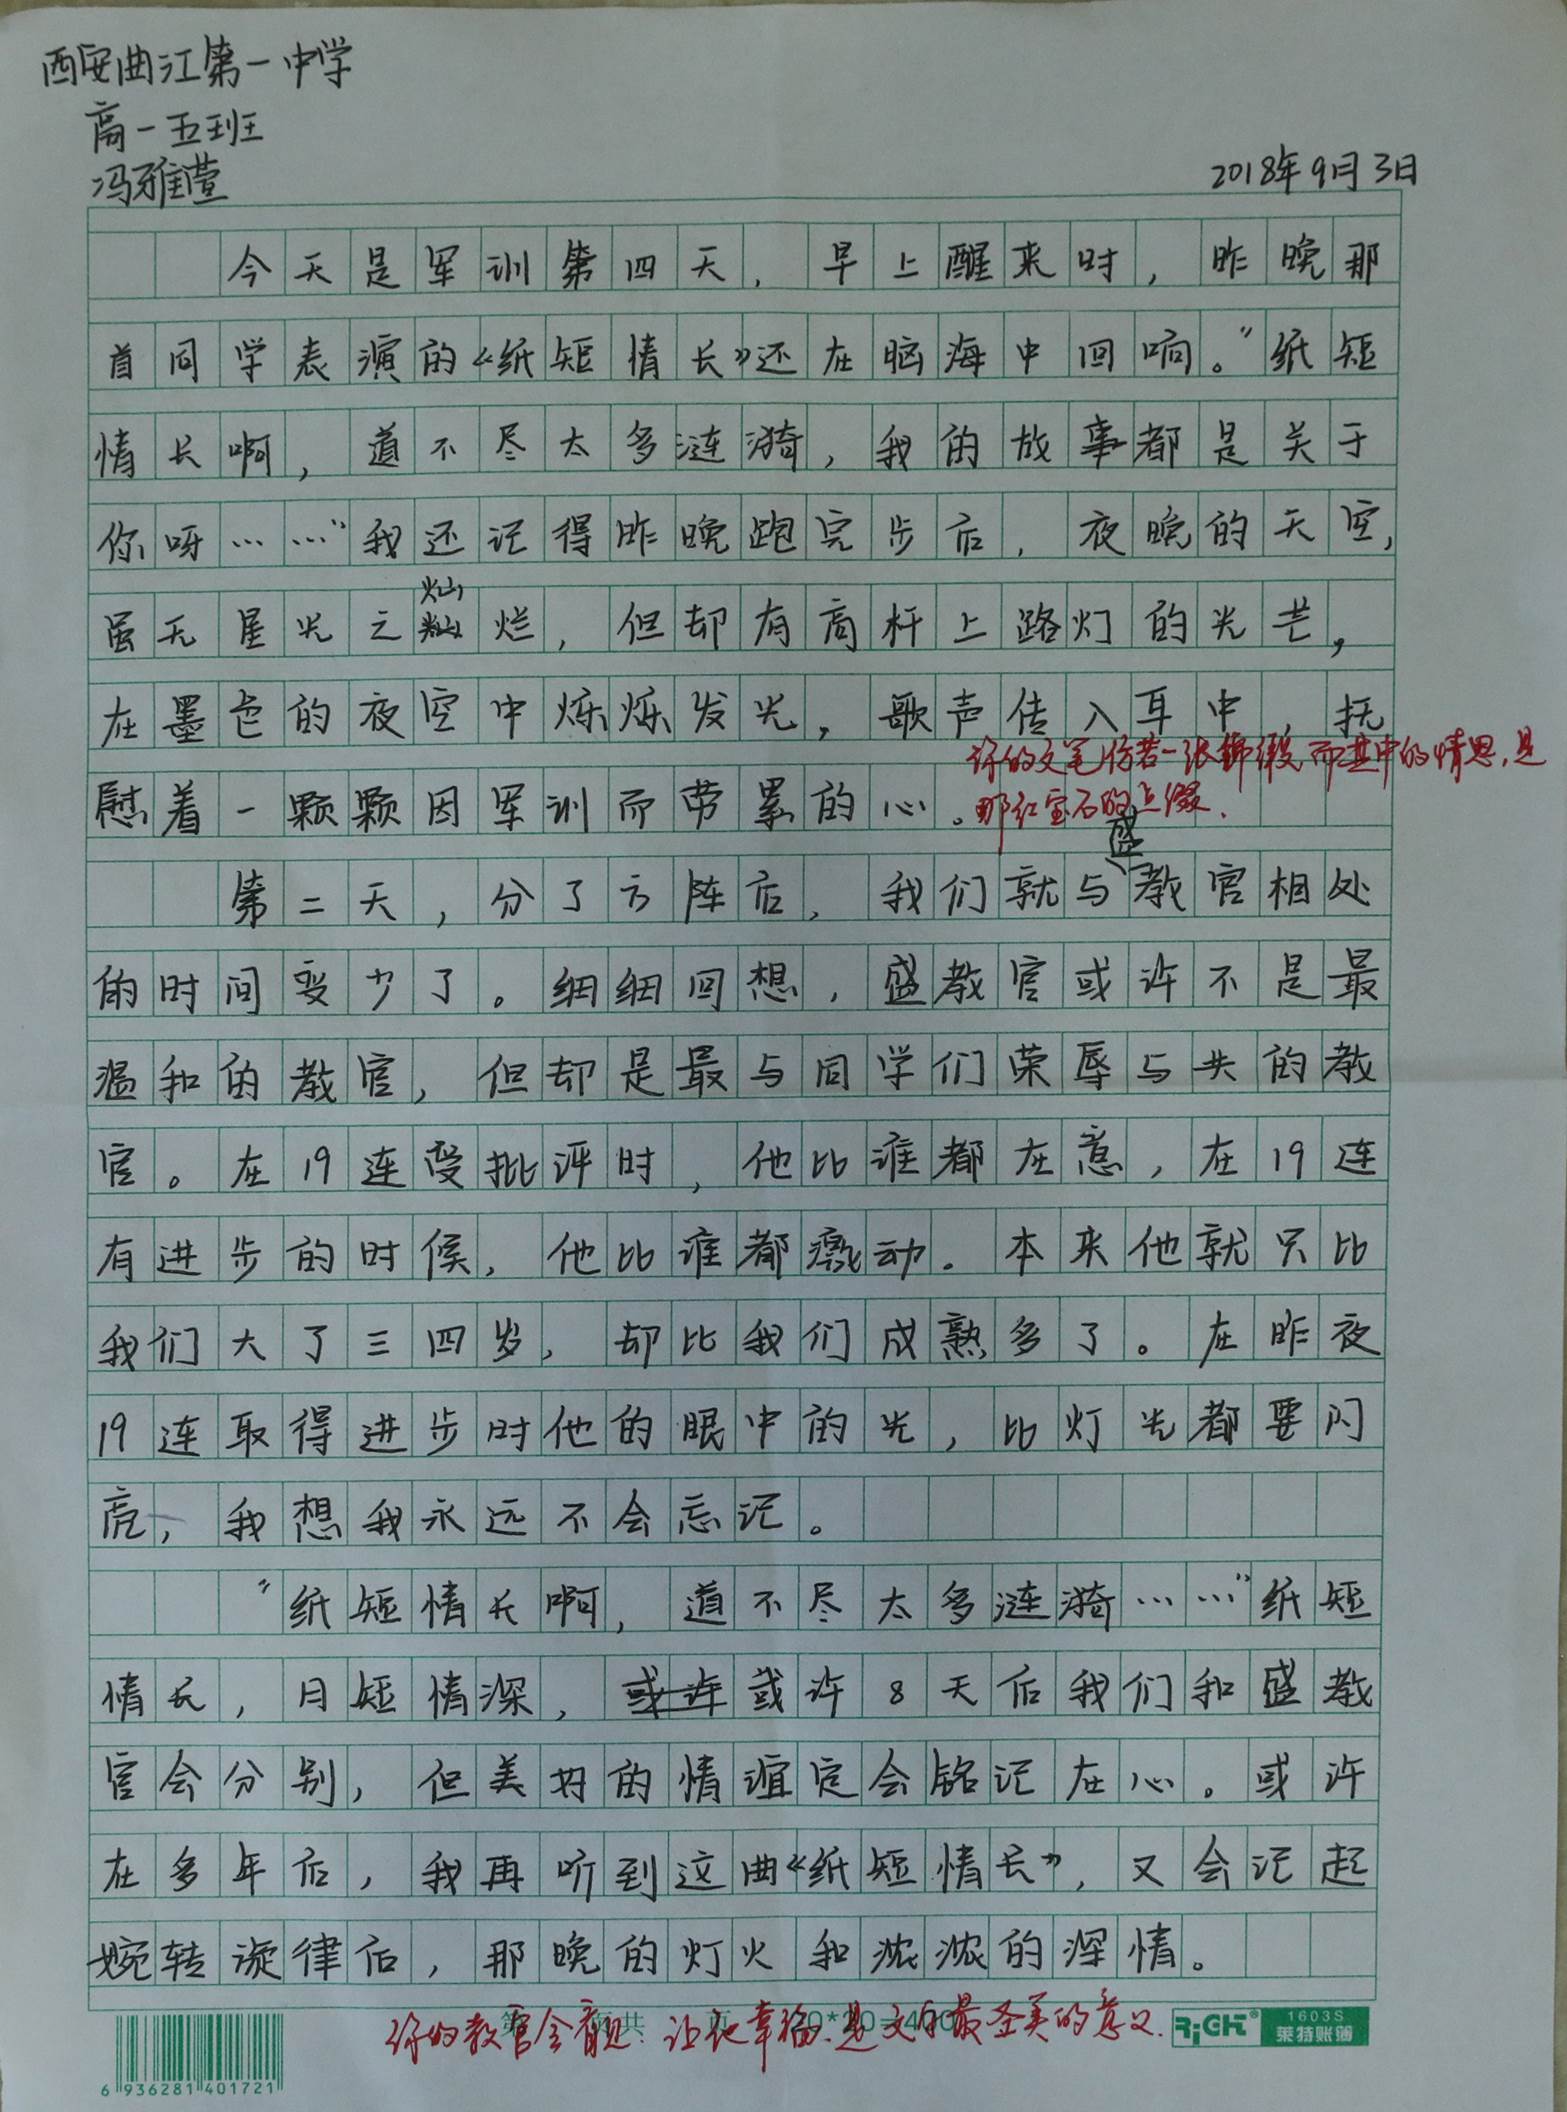 西安曲江第一中学
高一五班
冯雅萱
2018年9月3日
今天是军训第四天，早上醒来时，昨晚那
首同学表演的《纸短情长》还在脑海中回响。“纸短
情长啊，道不尽太多涟漪，我的故事都是关于
你呀……”我还记得昨晚跑完步后，夜晚的天空，
虽无星光之灿烂，但却有高杆上路灯的光芒，
在墨色的夜空中烁烁发光，歌声传入耳中，抚
慰着一颗颗因军训而劳累的心。
你的文笔仿若一张锦缎，而其中的情思，是
那红宝石的点缀.
第二天，分了方阵后，我们就与盛教官相处
的时间变少了。细细回想，盛教官或许不是最
温和的教官，但却是最与同学们荣辱与共的教
官。在19连受批评时，他比谁都在意，在19连
有进步的时候，他比谁都激动。本来他就只比
我们大了三四岁，却比我们成熟多了。在昨夜
19连取得进步时他的眼中的光，比灯光都要闪
亮，我想我永远不会忘记。
“纸短情长啊，道不尽太多涟漪……”纸短
情长，月短情深，或许8天后我们和盛教
官会分别，但美好的情谊定会铭记在心。或许
在多年后，我再听到这曲《纸短情长》，又会记起
婉转旋律后，那晚的灯火和浓浓的深情。
你的教官会看见.让他幸福.是文字最圣美的意义.
第 页共 页 20*20=400
RiCH 1603S
莱特账簿
6 936281 401721